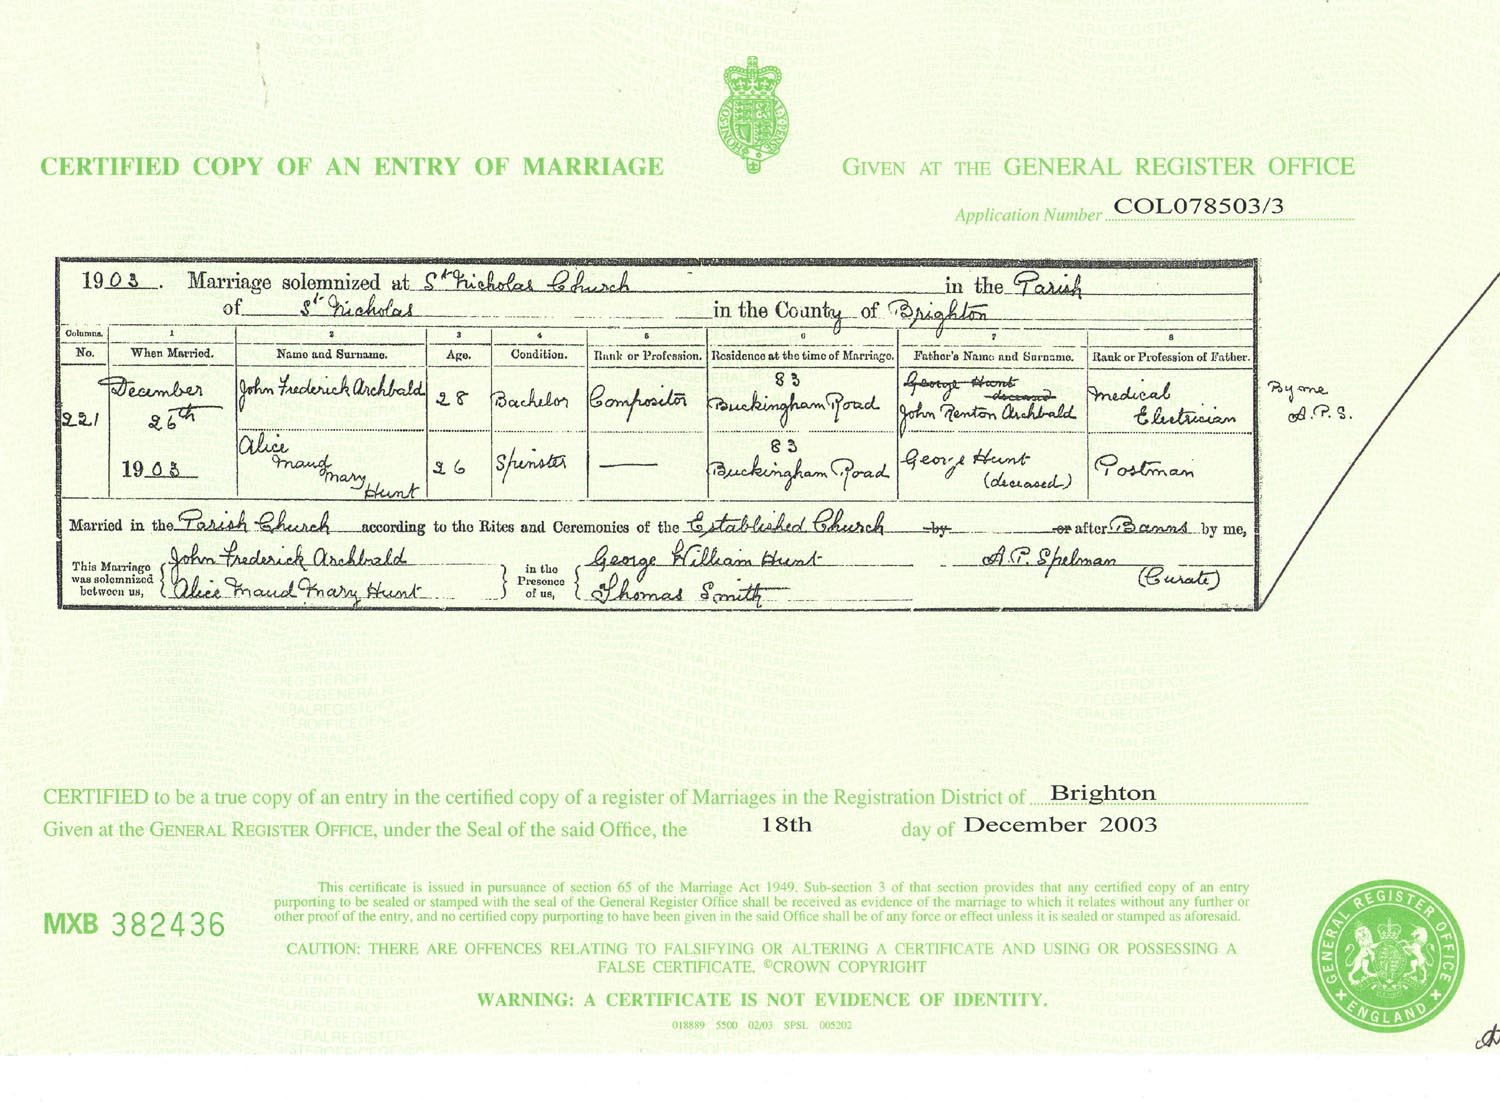 CERTIFIED COPY OF AN ENTRY OF MARRIAGE
GIVEN AT THE GENERAL REGISTER OFFICE
Application Number COL078503/3
1903. Marriage solemnized at St Nicholas Church in the Parish
of St Nicholas in the County of Brighton
Columns. 1 2 3 4 5 6 7 8
No. When Married. Name and Surname. Age. Condition. Rank or Profession. Residence at the time of Marriage. Father's Name and Surname. Rank or Profession of Father.
221 December 26th 1903
John Frederick Archbald 28 Bachelor Compositor 83 Buckingham Road George Hunt deceased John Renton Archbald Medical Electrician
By me
A.P.S.
Alice Maud Mary Hunt 26 Spinster — 83 Buckingham Road George Hunt (deceased) Postman
Married in the Parish Church according to the Rites and Ceremonies of the Established Church by or after Banns by me,
This Marriage was solemnized between us, John Frederick Archbald Alice Maud Mary Hunt in the Presence of us, George William Hunt Thomas Smith A.P. Spelman (Curate)
CERTIFIED to be a true copy of an entry in the certified copy of a register of Marriages in the Registration District of Brighton
Given at the GENERAL REGISTER OFFICE, under the Seal of the said Office, the 18th day of December 2003
This certificate is issued in pursuance of section 65 of the Marriage Act 1949. Sub-section 3 of that section provides that any certified copy of an entry
purporting to be sealed or stamped with the seal of the General Register Office shall be received as evidence of the marriage to which it relates without any further or
other proof of the entry, and no certified copy purporting to have been given in the said Office shall be of any force or effect unless it is sealed or stamped as aforesaid.
MXB 382436
CAUTION: THERE ARE OFFENCES RELATING TO FALSIFYING OR ALTERING A CERTIFICATE AND USING OR POSSESSING A
FALSE CERTIFICATE. ©CROWN COPYRIGHT
WARNING: A CERTIFICATE IS NOT EVIDENCE OF IDENTITY.
018889 5500 02/03 SPSL 005202
GENERAL REGISTER OFFICE
ENGLAND